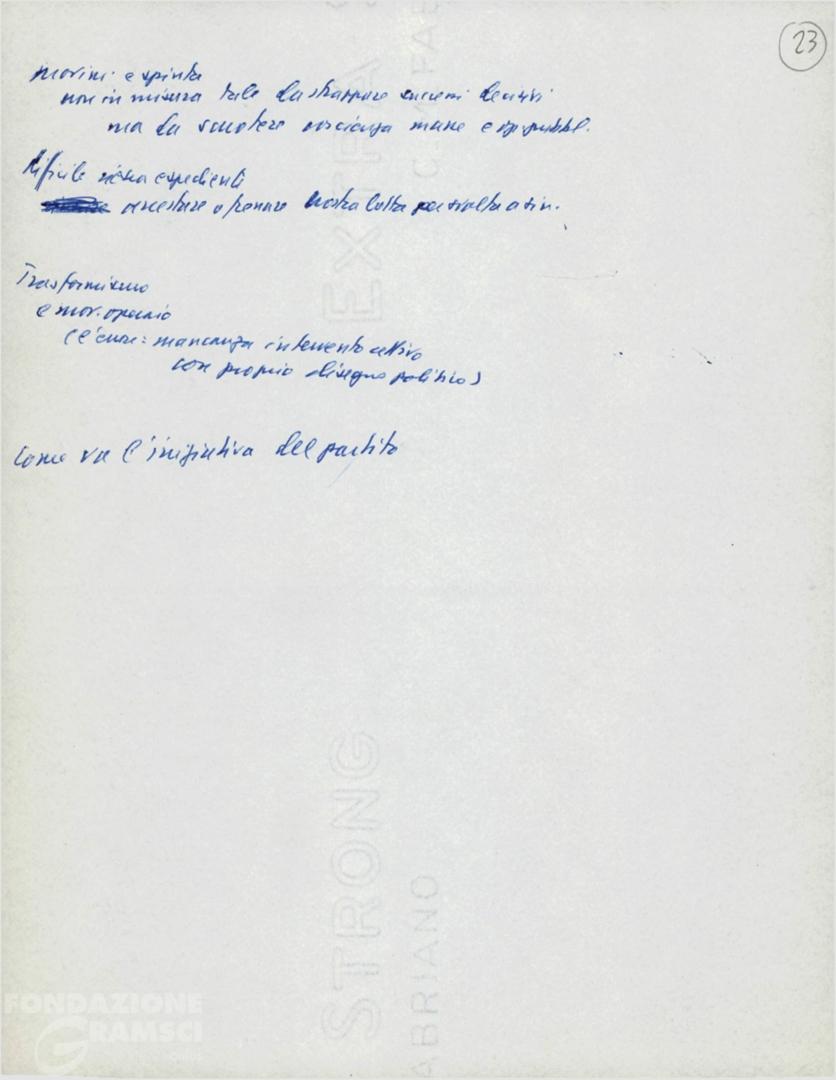 23
movim. e spinta
non in misura tale da strappare successi decisivi
ma da scuotere coscienza masse e op. pubbl.
Difficile senza espedienti
arrestare o frenare nostra lotta per svolta a sin.
Trasformismo
e mov. operaio
(c'è anche: mancanza intervento attivo
con proprio disegno politico)
Come va l'iniziativa del partito
EXTRA S
G. FAB
STRONG
ABRIANO
FONDAZIONE
GRAMSCI